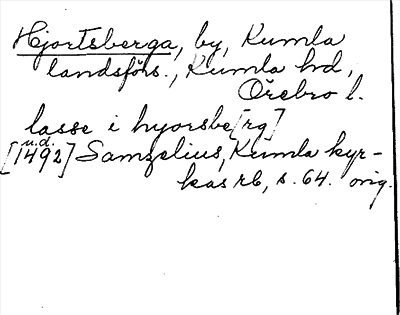 Hjortsberga, by, Kumla
landsförs., Kumla hd,
Örebro l.
lasse i hyorsbe[rg]
u.d.
[1492] Samzelius, Kumla kyr-
kas rb, s. 64. orig.